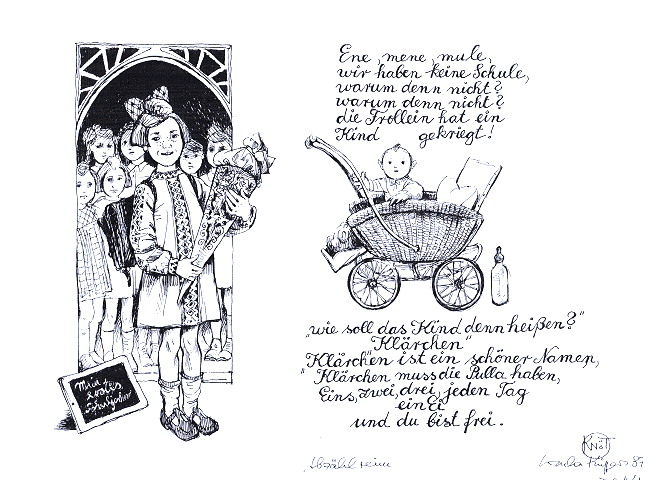 Ene, mene, mule,
wir haben keine Schule,
warum denn nicht?
warum denn nicht?
die Frollein hat ein
Kind gekriegt!
"wie soll das Kind denn heißen?"
Klärchen"
"Klärchen ist ein schöner Namen,
"Klärchen muss die Pulla haben,
Eins, zwei, drei, jeden Tag
ein Ei
und du bist frei.
Mein
erstes
Schuljahr
Abzählreim
KNOTT